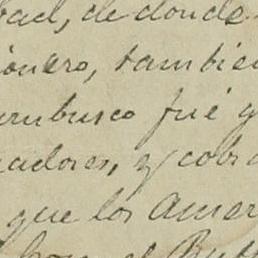 bad, de donde
ionero, tambien
urubusco fué y
adores, y cobra
que los Amer